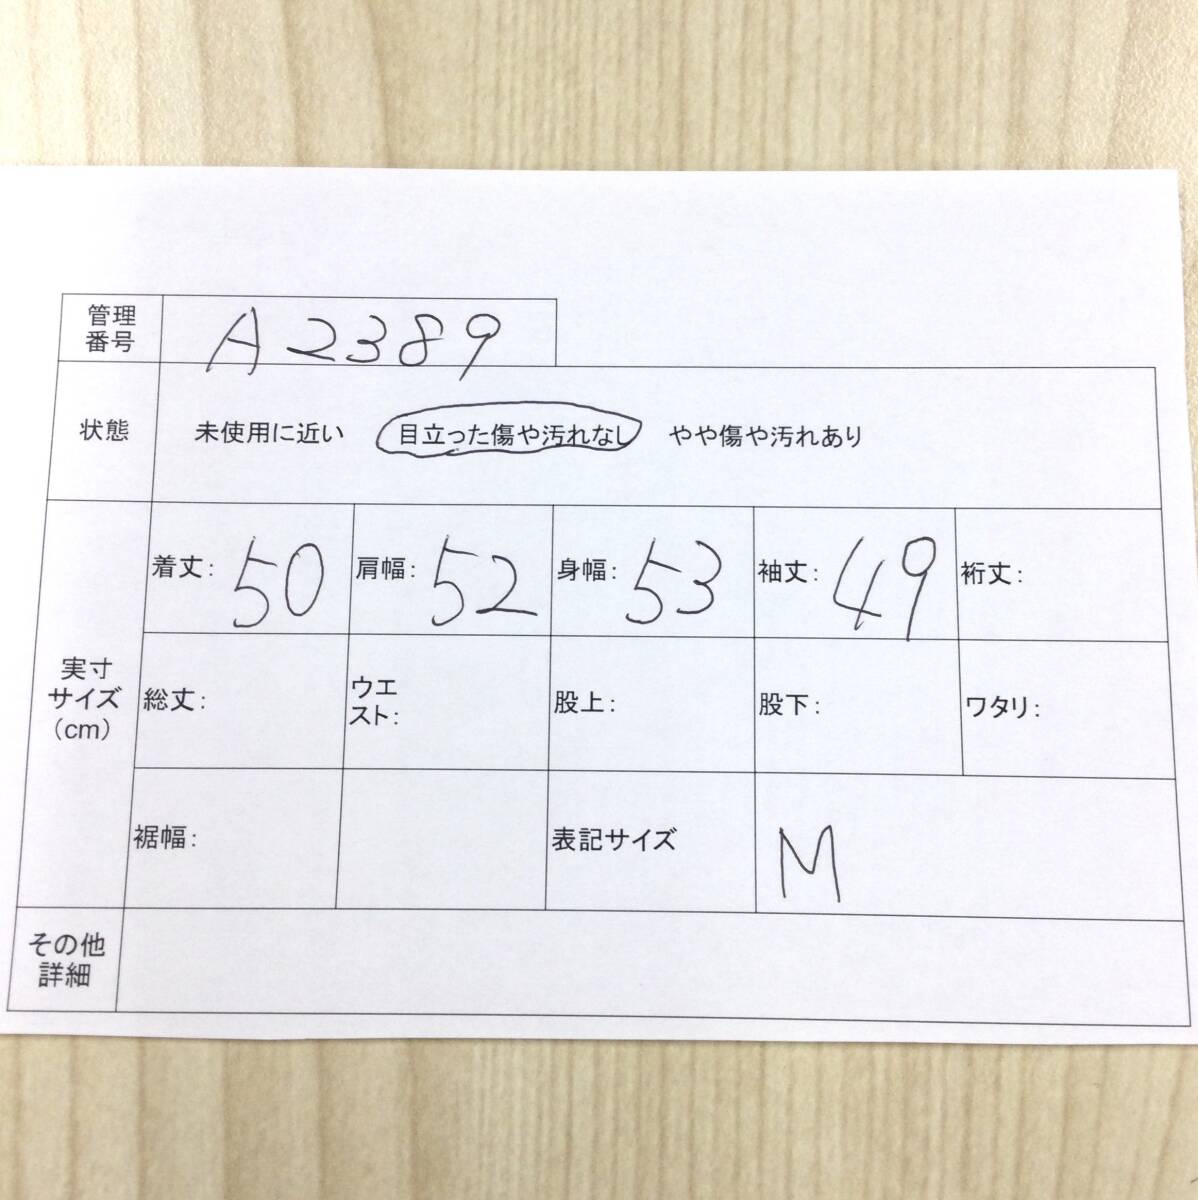 管理
番号
A2389
状態
未使用に近い 目立った傷や汚れなし やや傷や汚れあり
実寸
サイズ
(cm)
着丈: 50 肩幅: 52 身幅: 53 袖丈: 49 裄丈:
総丈: ウエ
スト: 股上: 股下: ワタリ:
裾幅: 表記サイズ M
その他
詳細